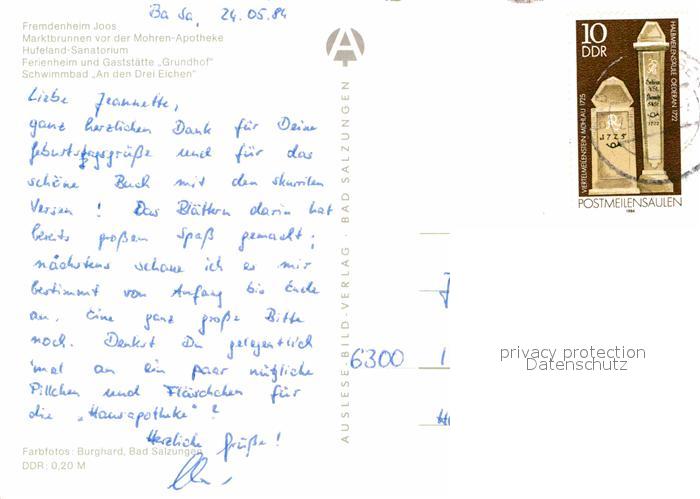 Ba Sa, 24.05.84
Fremdenheim Joos
Marktbrunnen vor der Mohren-Apotheke
Hufeland-Sanatorium
Ferienheim und Gaststätte „Grundhof"
Schwimmbad „An den Drei Eichen"
Liebe Jeannette,
ganz herzlichen Dank für Deine
Geburtstagsgrüße und für das
schöne Buch mit den skurrilen
Versen! Das Blättern darin hat
bereits großen Spaß gemacht;
nächstens schaue ich es mir
bestimmt von Anfang bis Ende
an. Eine ganz große Bitte
noch. Denkst Du gelegentlich
'mal an ein paar nützliche
Pillchen und Fläschchen für
die „Hausapotheke"?
Herzliche Grüße!
Farbfotos: Burghard, Bad Salzungen
DDR: 0,20 M
AUSLESE-BILD-VERLAG · BAD SALZUNGEN
10
DDR
VIERTELMEILENSTEIN MÜHLAU 1725
HALBMEILENSÄULE OEDERAN 1722
1725
1722
POSTMEILENSÄULEN
1984
6300
privacy protection
Datenschutz